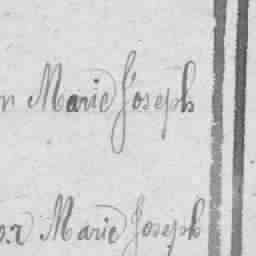 n Marie Joseph
or Marie Joseph